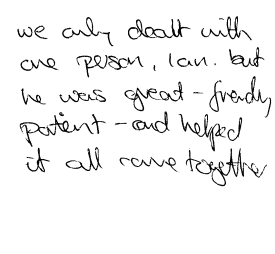 we only dealt with
one person, Ian. but
he was great - friendly
patient - and helped
it all come together